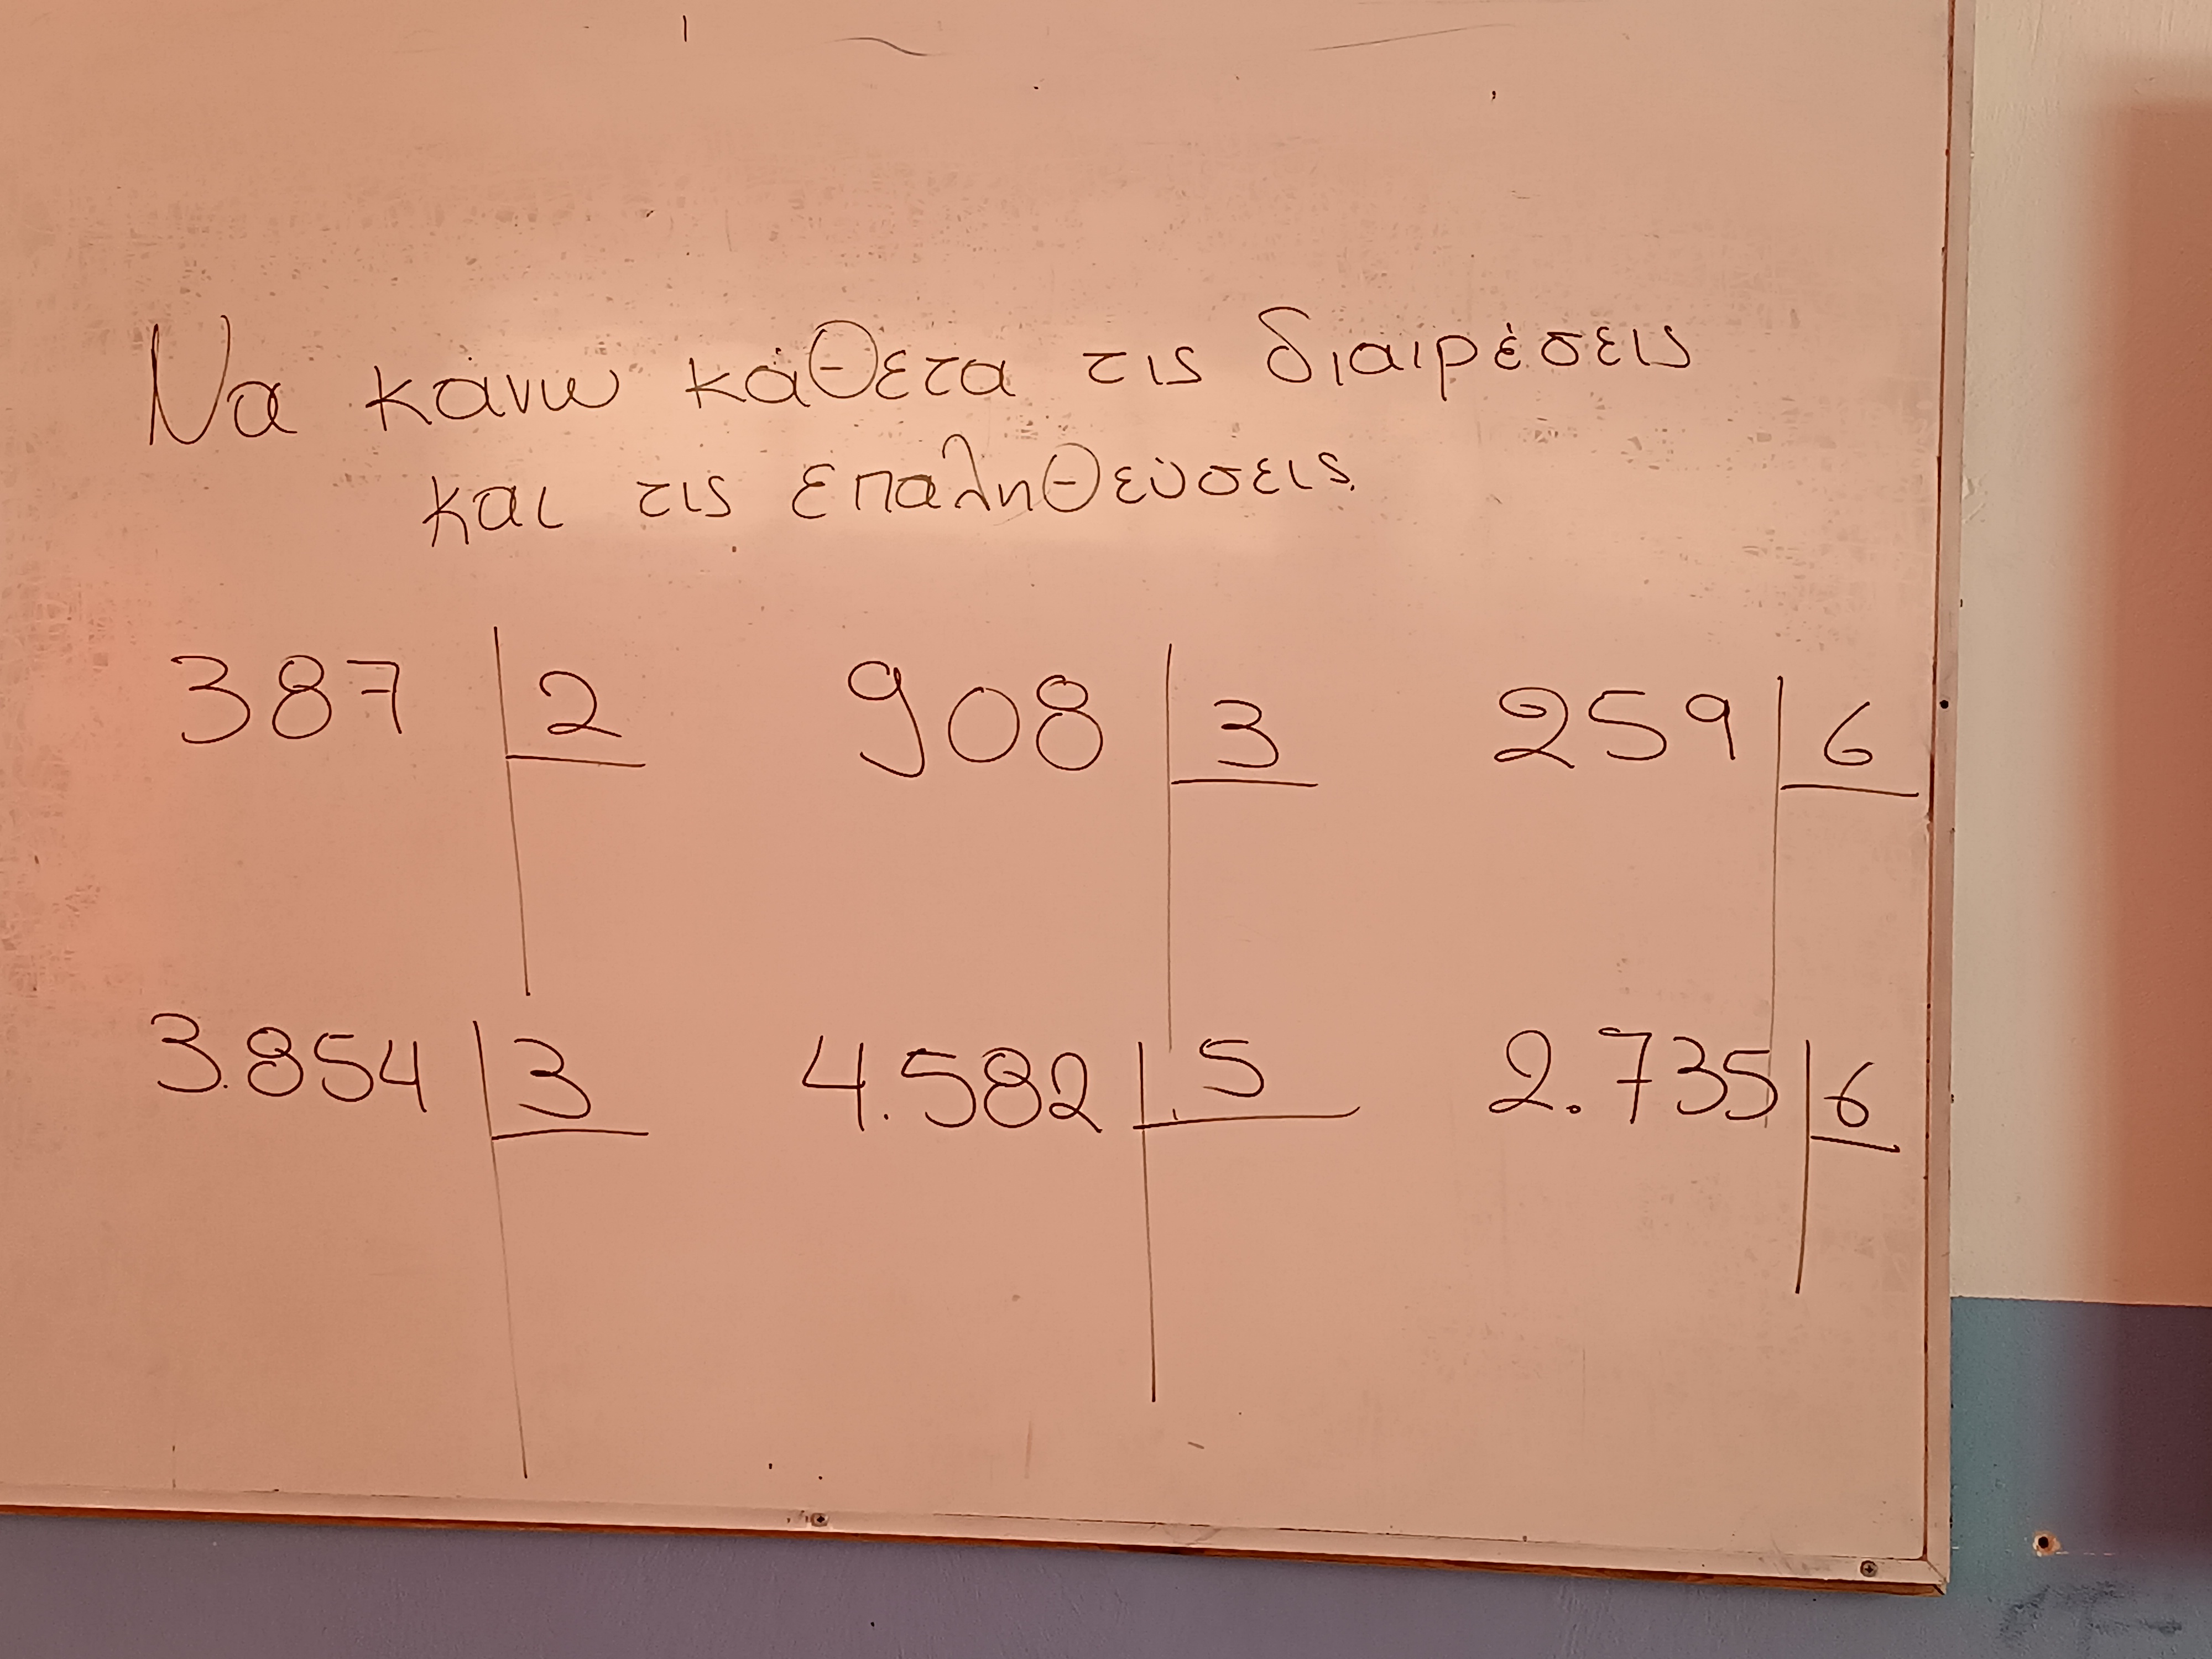 Να κάνω κάθετα τις διαιρέσεις
και τις επαληθεύσεις.
387 2 908 3 259 6
3.854 3 4.582 5 2.735 6